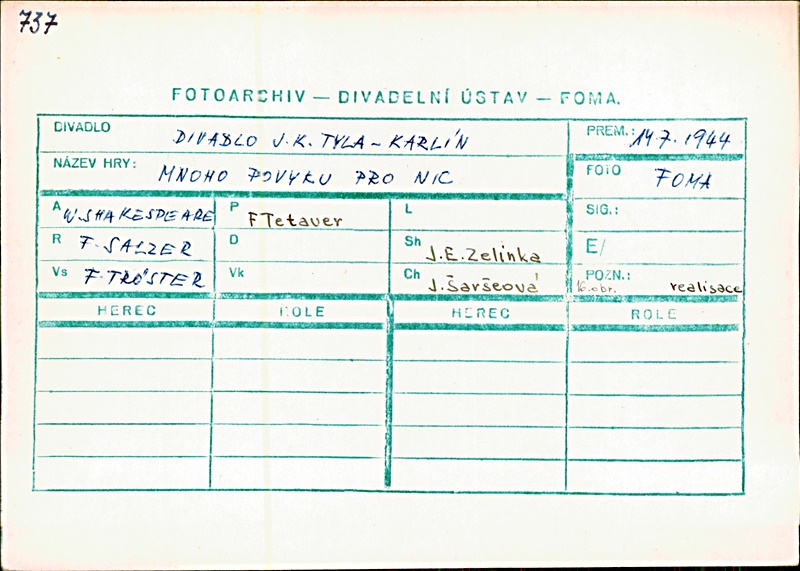 737
FOTOARCHIV — DIVADELNÍ ÚSTAV — FOMA.
DIVADLO DIVADLO J.K. TYLA – KARLÍN PREM.: 14.7.1944
NÁZEV HRY: MNOHO POVYKU PRO NIC FOTO FOMA
A W. SHAKESPEARE P F Tetauer L SIG.:
R F. SALZER D Sh J.E. Zelinka E/
Vs F. TRÖSTER Vk Ch J. Šaršeová POZN.: 16.obr. realisace
HEREC ROLE HEREC ROLE